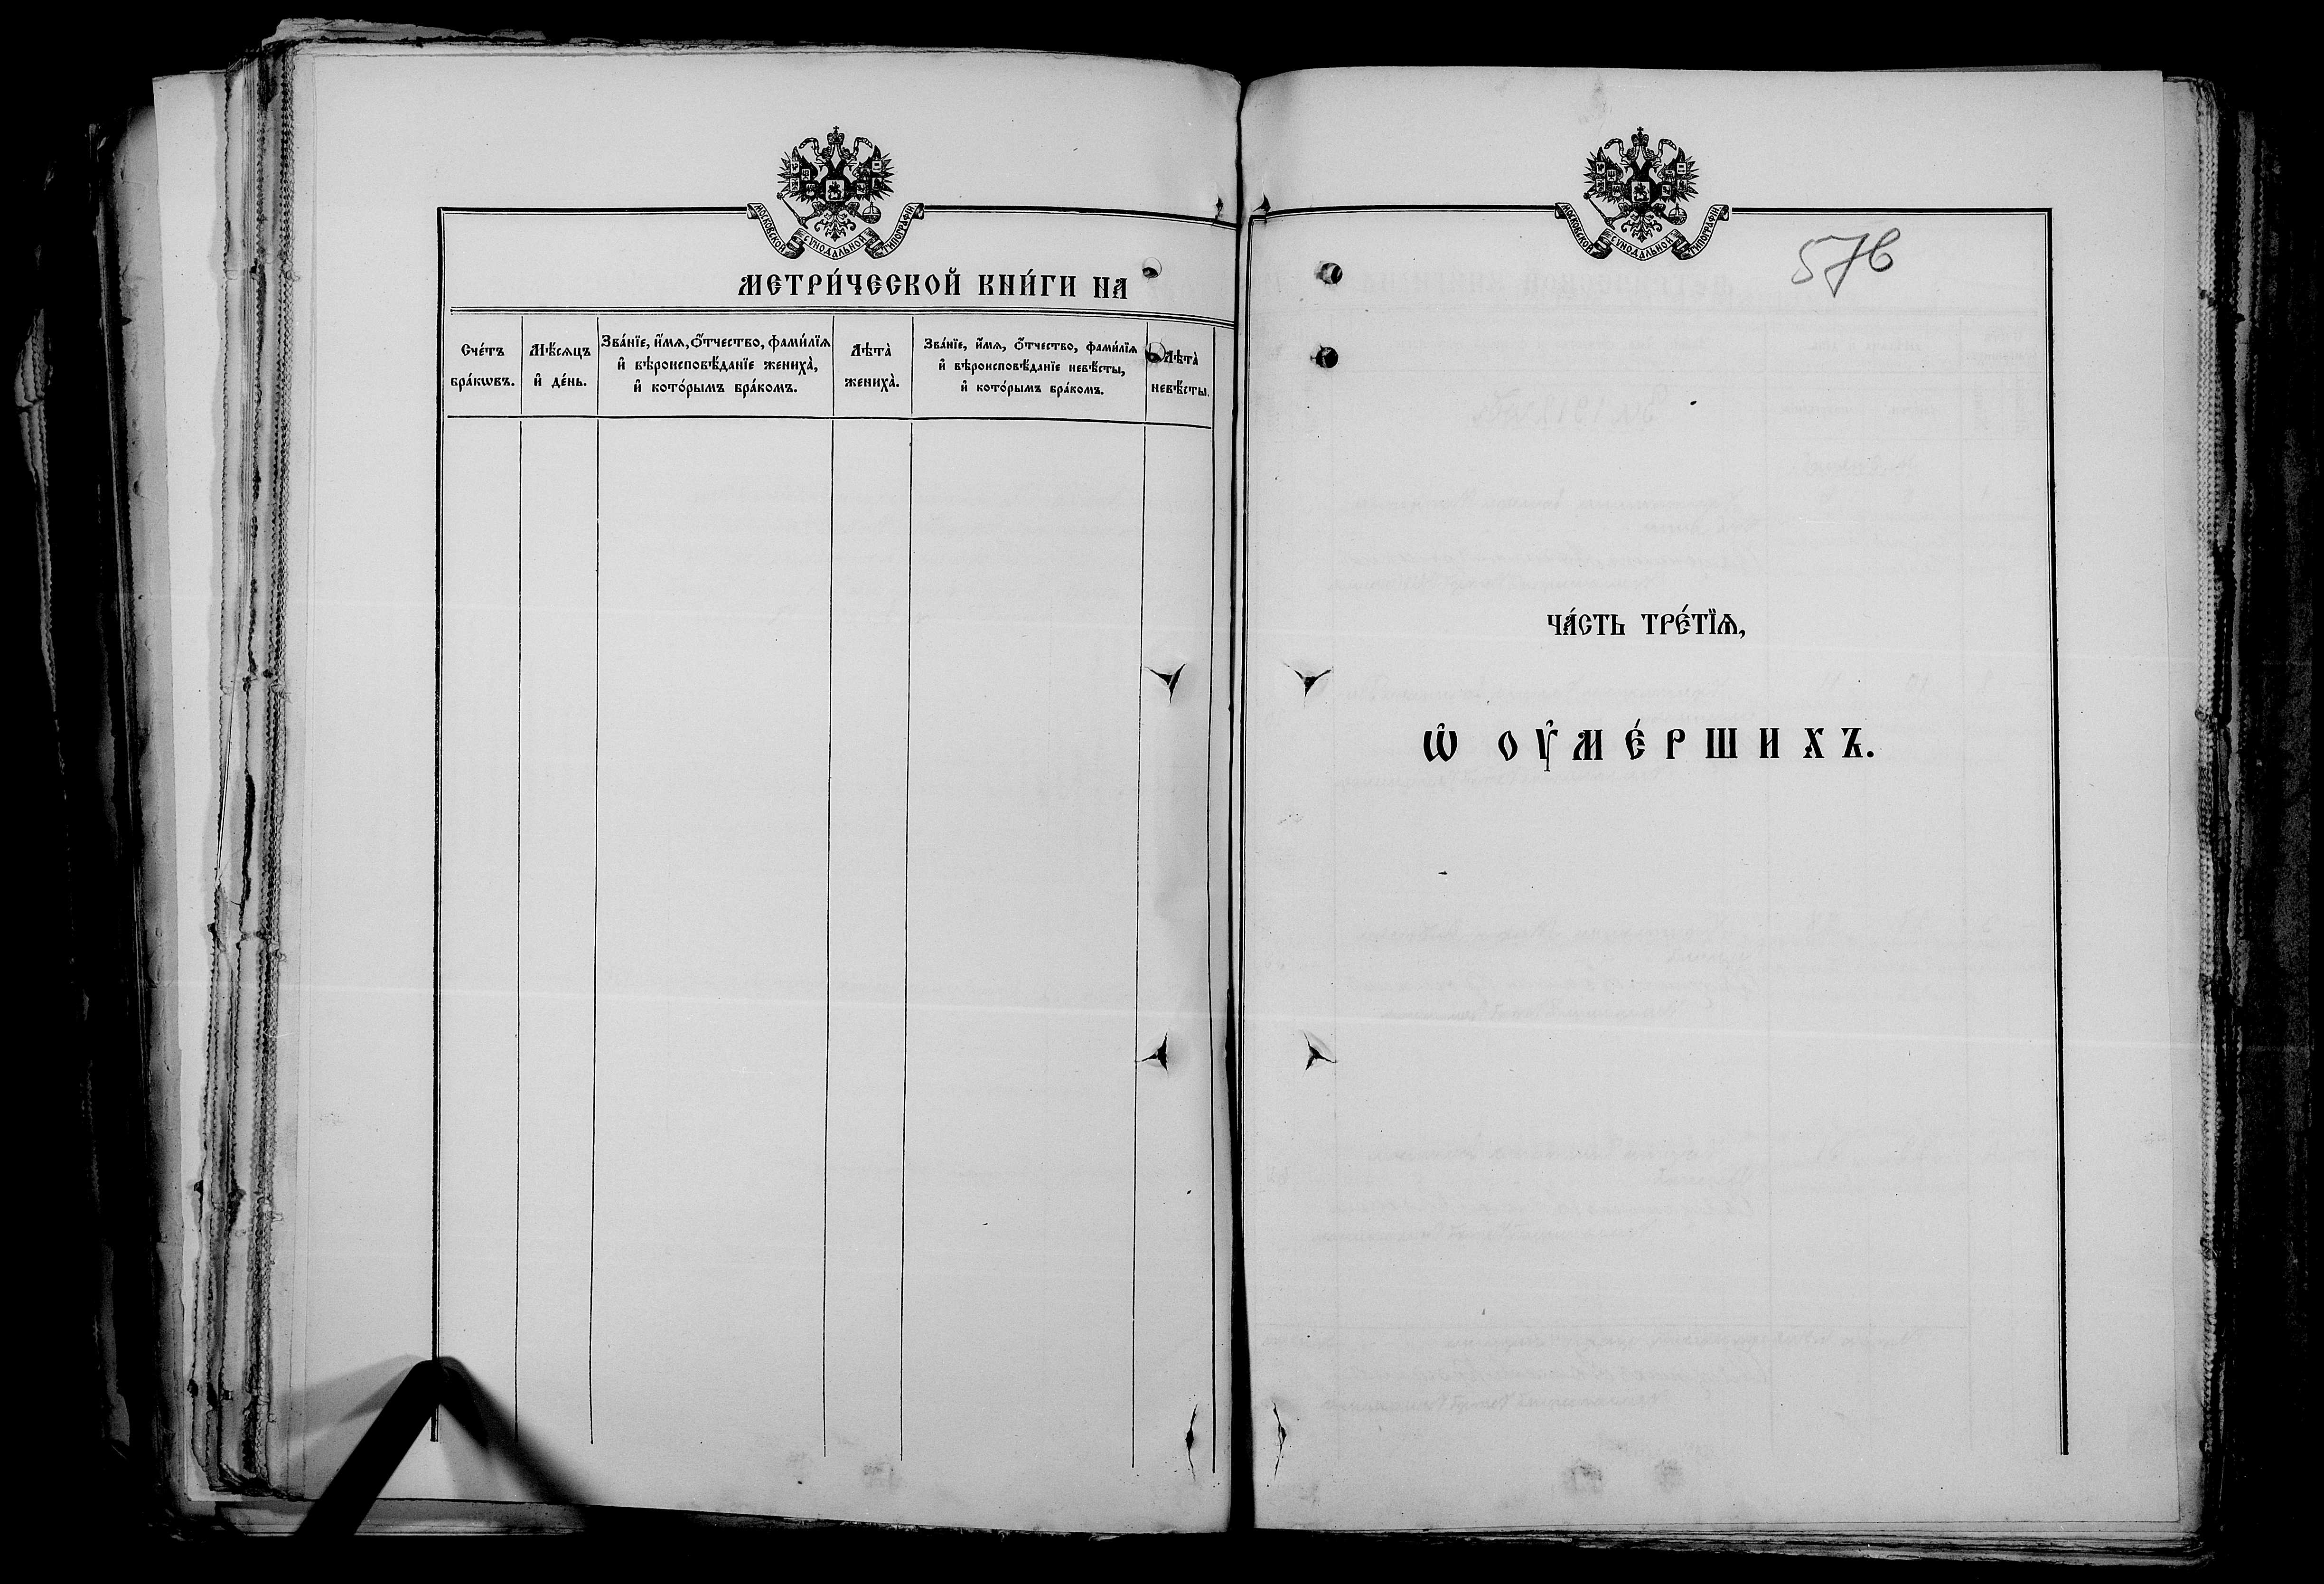 МОСКОВСКОЙ СѴНОДАЛЬНОЙ ТИПОГРАФІИ
МЕТРИ́ЧЕСКОЙ КНИ́ГИ НА
Сче́тъ бра́кѡвъ.
Мѣ́сѧцъ и҆ де́нь.
Зва́нїе, и҆́мѧ, ѻ҆́тчество, фами́лїѧ
и҆ вѣроисповѣ́данїе жениха̀,
и҆ кото́рымъ бра́комъ.
Лѣта̀ жениха̀.
Зва́нїе, и҆́мѧ, ѻ҆́тчество, фами́лїѧ
и҆ вѣроисповѣ́данїе невѣ́сты,
и҆ кото́рымъ бра́комъ.
Лѣта̀ невѣ́сты.
МОСКОВСКОЙ СѴНОДАЛЬНОЙ ТИПОГРАФІИ
576
ЧА́СТЬ ТРЕ́ТЇѦ,
Ѡ҆ ОУ҆МЕ́РШИХЪ.